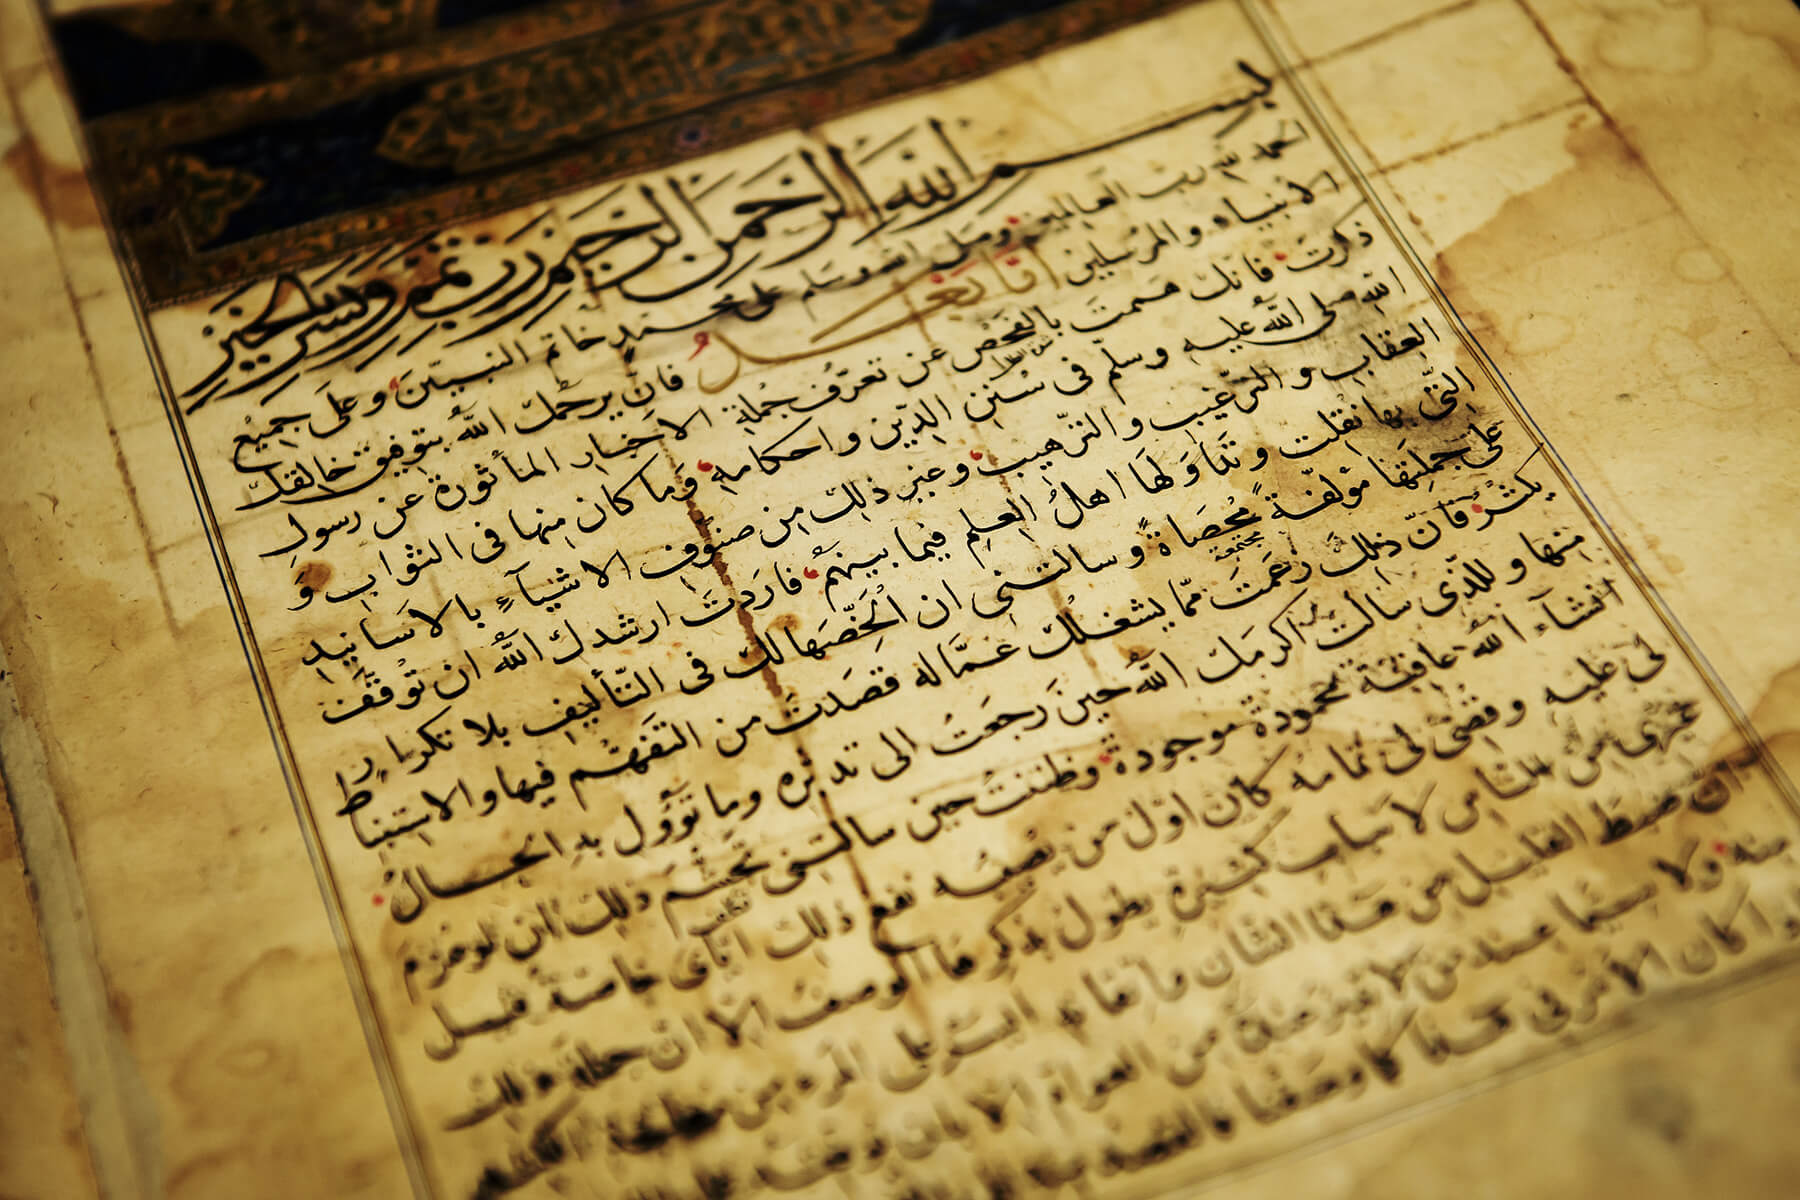 بسم الله الرحمن الرحيم رب تمم ويسر بالخير
الحمد لله رب العالمين وصلى الله وسلم على محمد خاتم النبيين وعلى جميع
الانبياء والمرسلين اما بعد فانك يرحمك الله بتوفيق خالقك
ذكرت فانك هممت بالفحص عن تعرف جملة الاخبار المأثورة عن رسول
الله صلى الله عليه وسلم فى سنن الدين واحكامه وما كان منها فى الثواب و
العقاب والترغيب والترهيب وغير ذلك من صنوف الاشياء بالاسانيد
التى بها نقلت وتداولها اهل العلم فيما بينهم فاردت ارشدك الله ان توقف
على جملتها مؤلفة محصاة وسالتنى ان الخصها لك فى التأليف بلا تكرار
يكثر فان ذلك زعمت مما يشغلك عما له قصدت من التفهم فيها والاستنباط
منها وللذى سالت اكرمك الله حين رجعت الى تدبره وما تؤول به الحال
انشاء الله عاقبة محمودة موجودة وظننت حين سالتنى تجشم ذلك ان لو عزم
لى عليه وقضى لى تمامه كان اول من يصيبه نفع ذلك اياى خاصة قبل
غيرى من الناس لاسباب كثيرة يطول بذكرها الوصف الا ان جملة ذلك
ان ضبط القليل من هذا الشان
منه ولا سيما عند من لا تمييز عنده من العوام الا بان